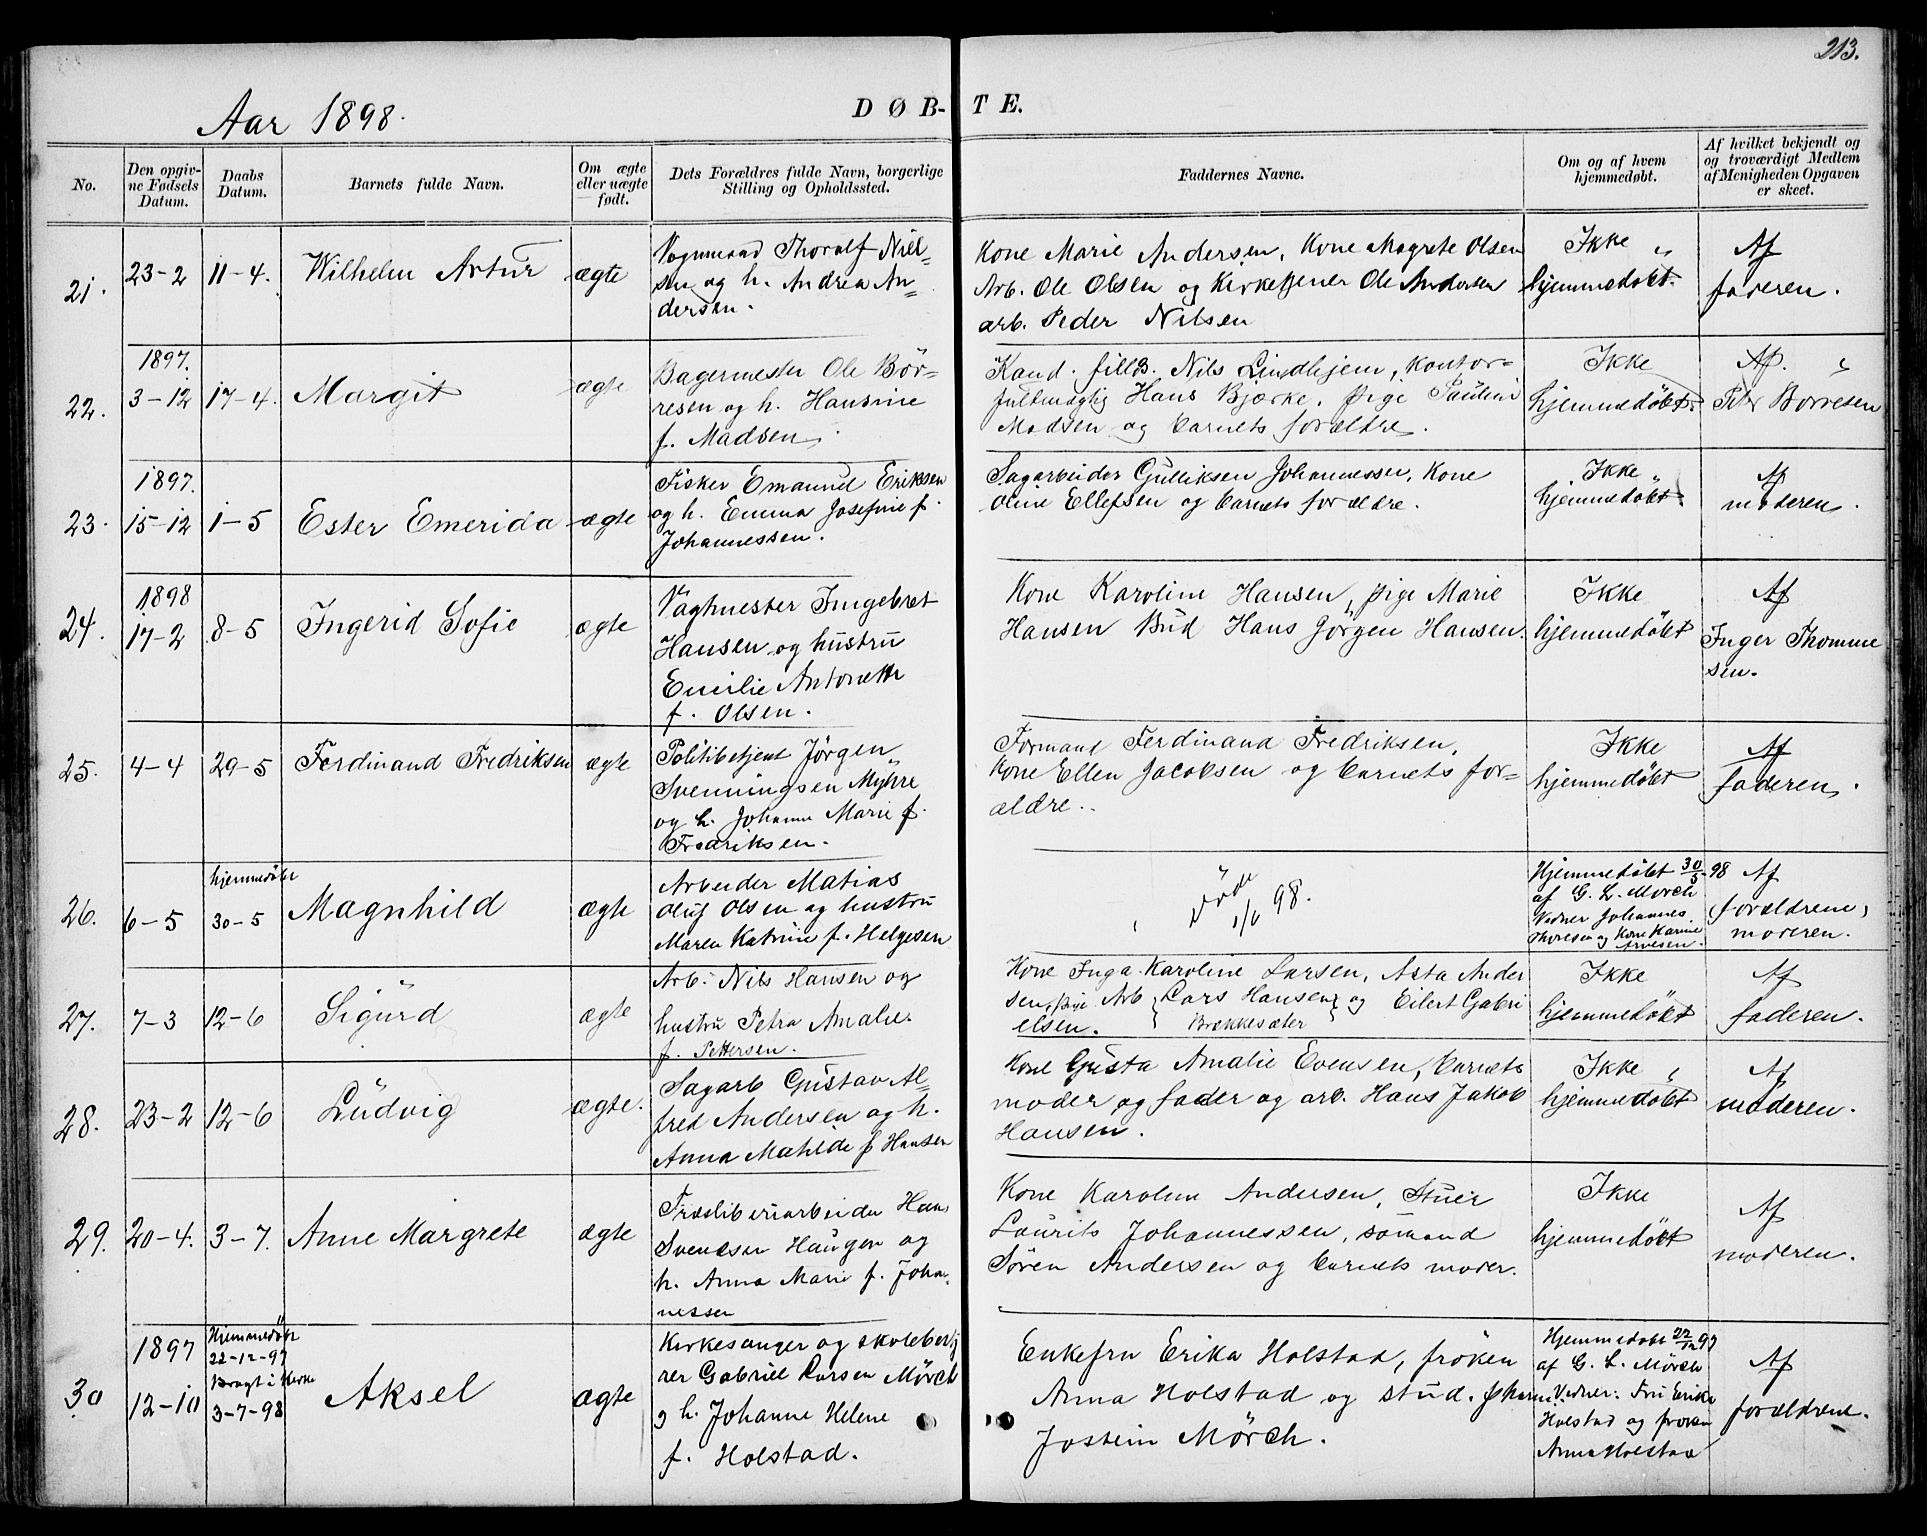 213.
Aar 1898.
DØB-TE.
No.
Den opgivne Fødsels Datum.
Daabs Datum.
Barnets fulde Navn.
Om ægte eller uægte født.
Dets Forældres fulde Navn, borgerlige Stilling og Opholdssted.
Faddernes Navne.
Om og af hvem hjemmedøbt.
Af hvilket bekjendt og og troværdigt Medlem af Menigheden Opgaven er skeet.
21.
23-2
11-4.
Wilhelm Artur
ægte
Vognmand Thoralf Niel-
sen og h. Andrea An-
dersen.
Kone Marie Andersen, Kone Magrete Olsen
Arb. Ole Olsen og Kirketjener Ole Andersen
arb. Peder Nilsen
Ikke
hjemmedøbt.
Af
faderen.
22.
1897.
3-12
17-4.
Margit
ægte
Bagermester Ole Bör-
resen og h. Hansine
f. Madsen.
Kand. fill. Nils Lindhjem, Kontor-
fuldmægtig Hans Bjerke, Pige Pauline
Madsen og barnets forældre.
Ikke
hjemmedøbt.
Af.
Peter Borresen
23.
1897.
15-12
1-5
Ester Emerida
ægte
Fisker Emanuel Eriksen
og h. Emma Josefine f.
Johannessen.
Sagarbeider Gulliksen Johannessen, Kone
Oline Ellefsen og barnets forældre.
Ikke
hjemmedøbt.
Af
moderen.
24.
1898
17-2
8-5
Ingerid Sofie
ægte
Vagtmester Ingebret
Hansen og hustru
Emilie Antonette
f. Olsen.
Kone Karoline Hansen, pige Marie
Hansen Bud Hans Jörgen Hansen.
Ikke
hjemmedøbt
Af
Inger Thomme
sen.
25.
4-4
29-5
Ferdinand Fredriksen
ægte
Politibetjent Jörgen
Svenningsen Myhre
og h. Johanne Marie f.
Fredriksen.
Formand Ferdinand Fredriksen,
Kone Ellen Jacobsen og barnets for-
ældre.
Ikke
hjemmedøbt
Af
faderen.
26.
6-5
hjemmedøbt
30-5
Magnhild
ægte
Arbeider Matias
Oluf Olsen og hustru
Maren Katrine f. Helgesen
Døde
1/6 98.
Hjemmedøbt 30/5-98
af G. L. Mörch
Vidner Johannes
Thoresen og Kone Karine
Af
forældrene,
moderen.
27.
7-3
12-6
Sigurd
ægte
Arb. Nils Hansen og
hustru Petra Amalie
f. Pettersen.
Kone Inga Karoline Larsen, Asta Ander
sen, pige Arb Lars Hansen og Eilert Gabri
elsen. Brekkesæter
Ikke
hjemmedøbt
Af
faderen.
28.
23-2
12-6
Ludvig
ægte.
Sagarb Gustav Al-
fred Andersen og h.
Anna Mathilde f Hansen
Kone Gusta Amalie Evensen, barnets
moder og fader og arb. Hans Jakob
Hansen.
Ikke
hjemmedøbt
Af
moderen.
29.
20-4.
3-7.
Anne Margrete
ægte
Træsliberiarbeider Hans
Svendsen Haugen og
h. Anna Marie f. Joha-
nessen
Kone Karoline Andersen, Stuer
Laurits Johannessen, sømand
Sören Andersen og barnets moder.
Ikke
hjemmedøbt
Af
moderen.
30
1897
12-10
Hjemmedøbt
22-12-97
Bragt i Kirke
3-7-98
Aksel
ægte
Kirkesanger og skolebesty
rer Gabriel Larsen Mörch
og h. Johanne Helene
f. Holstad.
Enkefru Erika Holstad, frøken
Anna Holstad og stud.
Jostein Mörch.
Hjemmedøbt 22/12 97
af G. L. Mörch
Vidner: Fru Erika
Holstad og frøken
Anna Holstad
Af
forældrene.